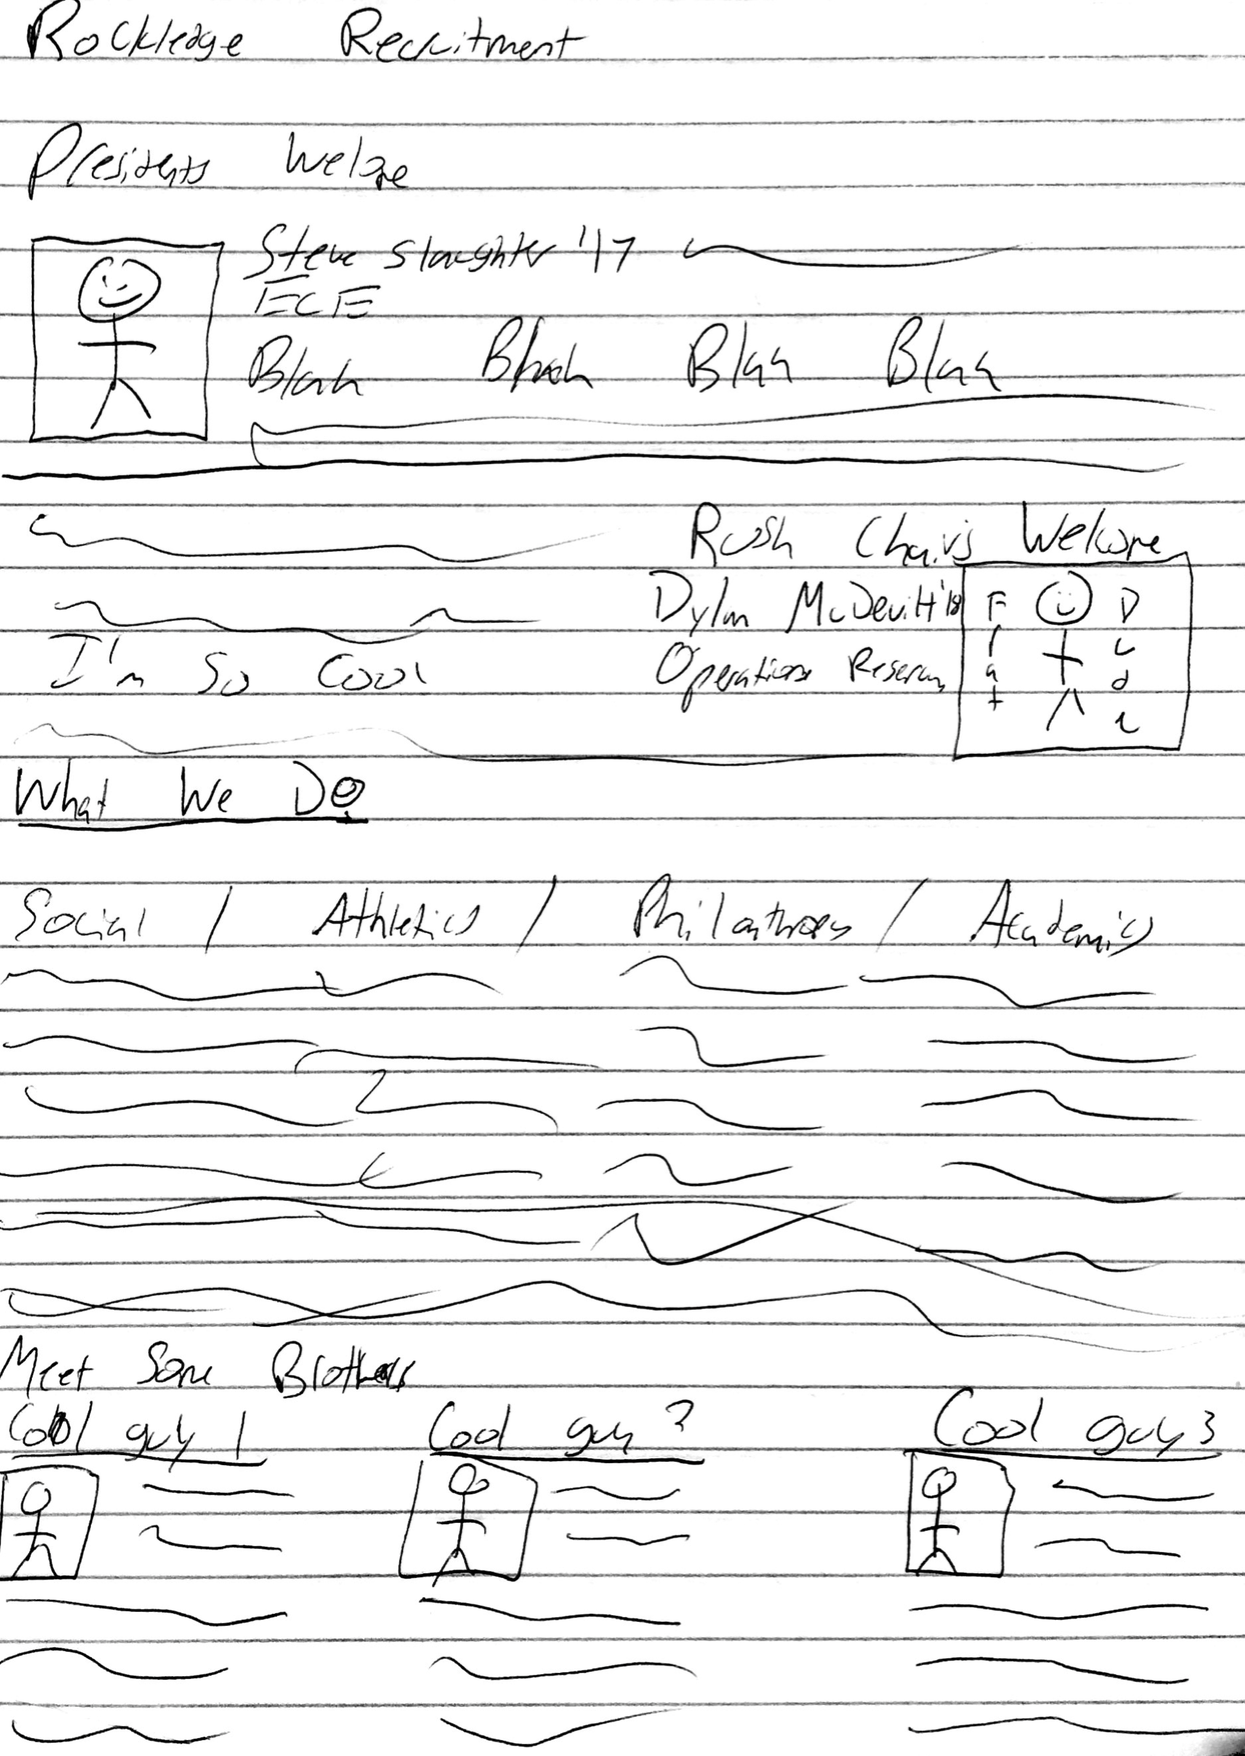 Rockledge Recruitment
Presidents Welcome
Steve Slaughter '17
ECE
Blah Blah Blah Blah
Rush Chairs Welcome
Dylan McDevitt '18
Frat Dude
I'm So Cool
Operations Research
What We Do
Social / Athletics / Philanthropy / Academics
Meet Some Brothers
Cool guy 1 Cool guy 2 Cool guy 3